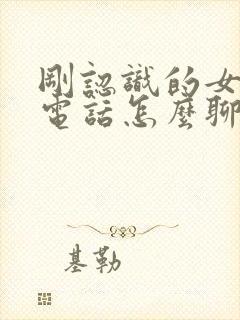 剛認識的女
電話怎麼聊
基勒